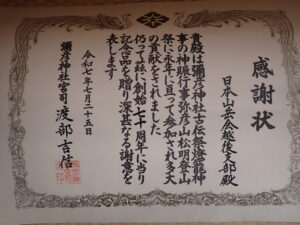 感謝状
日本山岳会越後支部殿
貴殿は彌彦神社古伝祭燈籠神
事の神賑行事弥彦山松明登山
祭に永年に亘って参加され多大
の貢献をされました
仍つて茲に創始七十周年に当り
記念品を贈り深甚なる謝意を
表します
令和七年七月二十五日
彌彦神社宮司 渡部吉信